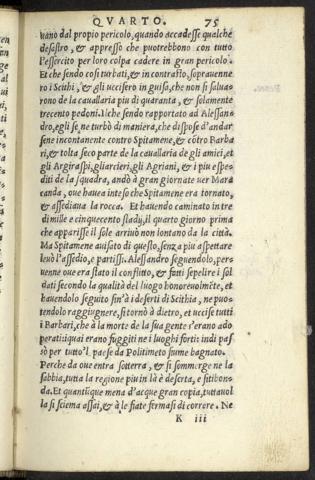 QVARTO. 75
uano dal proprio pericolo, quando accadesse qualche
desastro, & appresso che puotrebbono con tutto
l'essercito per loro colpa cadere in gran pericolo.
Et che sendo cosi turbati, & in contrasto, soprauenne
ro i Scithi, & gli uccisero in guisa, che non si salua-
rono de la cauallaria piu di quaranta, & solamente
trecento pedoni. Ilche sendo rapportato ad Alessan-
dro, egli se ne turbò di maniera, che dispose d'andar
sene incontanente contro Spitamene, & cõtro Barba
ri, & tolta seco parte de la cauallaria de gli amici, et
gli Argiraspi, gli arcieri, gli Agriani, & i piu espe-
diti de la squadra, andò à gran giornate uer Mara
canda, oue hauea inteso che Spitamene era tornato,
& assediaua la rocca. Et hauendo caminato in tre
di mille e cinquecento stadij, il quarto giorno prima
che apparisse il sole arriuò non lontano da la città.
Ma Spitamene auisato di questo, senza piu aspettare
leuò l'assedio, e partissi. Alessandro seguendolo, per-
uenne oue era stato il conflitto, & fatti sepelire i sol
dati secondo la qualità del luogo honoreuolmẽte, et
hauendolo seguito sin'à i deserti di Scithia, ne puo-
tendolo raggiugnere, si tornò a dietro, et uccise tutti
i Barbari, che à la morte de la sua gente s'erano ado
perati: iquai erano fuggiti ne i luoghi forti: indi pas
sò per tutto'l paese da Politimeto fiume bagnato.
Perche da oue entra sotterra, & si sommerge ne la
sabbia, tutta la regione piu in là è deserta, e sitibon-
da. Et quantũque mena d'acque gran copia, tuttauol
ta si sciema assai, & à le fiate fermasi di correre. Ne
K iii